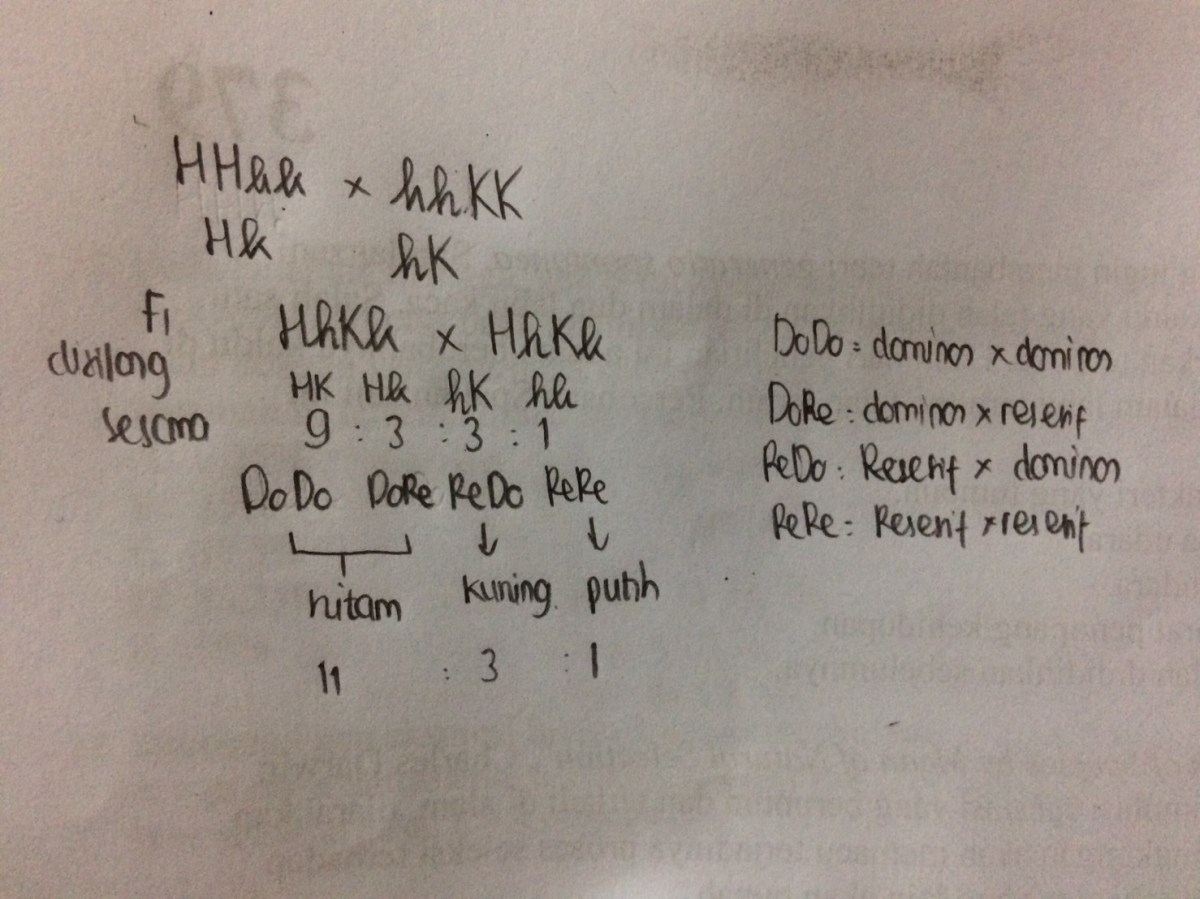 HHkk × hhKK
Hk hK
F1 HhKk × HhKk
disilang
sesama
HK Hk hK hk
9 : 3 : 3 : 1
DoDo DoRe ReDo ReRe
hitam kuning putih
11 : 3 : 1
DoDo = dominan × dominan
DoRe : dominan × resesif
ReDo : Resesif × dominan
ReRe = Resesif × resesif